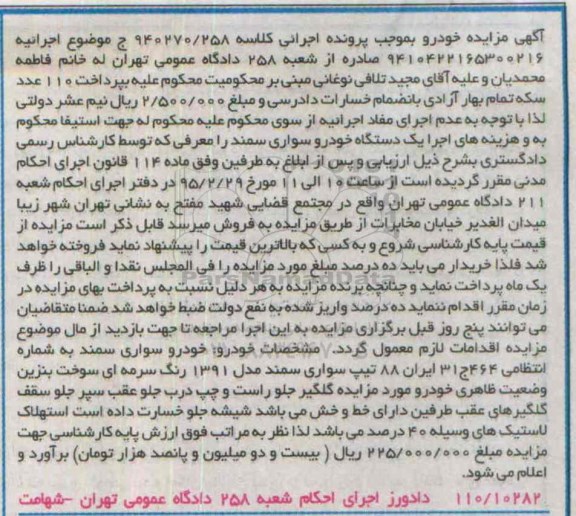 آگهی مزایده خودرو بموجب پرونده اجرائی کلاسه ۹۴۰۲۷۰/۲۵۸ ج موضوع اجرائیه
۹۴۱۰۴۲۲۱۶۵۳۰۰۲۱۶ صادره از شعبه ۲۵۸ دادگاه عمومی تهران له خانم فاطمه
محمدیان و علیه آقای مجید تلافی نوغانی مبنی بر محکومیت محکوم علیه بپرداخت ۱۱۰ عدد
سکه تمام بهار آزادی بانضمام خسارات دادرسی و مبلغ ۲/۵۰۰/۰۰۰ ریال نیم عشر دولتی
لذا با توجه به عدم اجرای مفاد اجرائیه از سوی محکوم علیه محکوم له جهت استیفا محکوم
به و هزینه های اجرا یک دستگاه خودرو سواری سمند را معرفی که توسط کارشناس رسمی
دادگستری بشرح ذیل ارزیابی و پس از ابلاغ به طرفین وفق ماده ۱۱۴ قانون اجرای احکام
مدنی مقرر گردیده است از ساعت ۱۰ الی ۱۱ مورخ ۹۵/۲/۲۹ در دفتر اجرای احکام شعبه
۲۱۱ دادگاه عمومی تهران واقع در مجتمع قضایی شهید مفتح به نشانی تهران شهر زیبا
میدان الغدیر خیابان مخابرات از طریق مزایده به فروش میرسد قابل ذکر است مزایده از
قیمت پایه کارشناسی شروع و به کسی که بالاترین قیمت را پیشنهاد نماید فروخته خواهد
شد فلذا خریدار می باید ده درصد مبلغ مورد مزایده را فی المجلس نقدا و الباقی را ظرف
یک ماه پرداخت نماید و چنانچه برنده مزایده به هر دلیل نسبت به پرداخت بهای مزایده در
زمان مقرر اقدام ننماید ده درصد واریز شده به نفع دولت ضبط خواهد شد ضمنا متقاضیان
می توانند پنج روز قبل برگزاری مزایده به این اجرا مراجعه تا جهت بازدید از مال موضوع
مزایده اقدامات لازم معمول گردد. مشخصات خودرو: خودرو سواری سمند به شماره
انتظامی ۴۶۴ج۳۱ ایران ۸۸ تیپ سواری سمند مدل ۱۳۹۱ رنگ سرمه ای سوخت بنزین
وضعیت ظاهری خودرو مورد مزایده گلگیر جلو راست و چپ درب جلو عقب سپر جلو سقف
گلگیر های عقب طرفین دارای خط و خش می باشد شیشه جلو خسارت داده است استهلاک
لاستیک های وسیله ۴۰ درصد می باشد لذا نظر به مراتب فوق ارزش پایه کارشناسی جهت
مزایده مبلغ ۲۲۵/۰۰۰/۰۰۰ ریال ( بیست و دو میلیون و پانصد هزار تومان) برآورد و
اعلام می شود.
۱۱۰/۱۰۲۸۲ دادورز اجرای احکام شعبه ۲۵۸ دادگاه عمومی تهران -شهامت